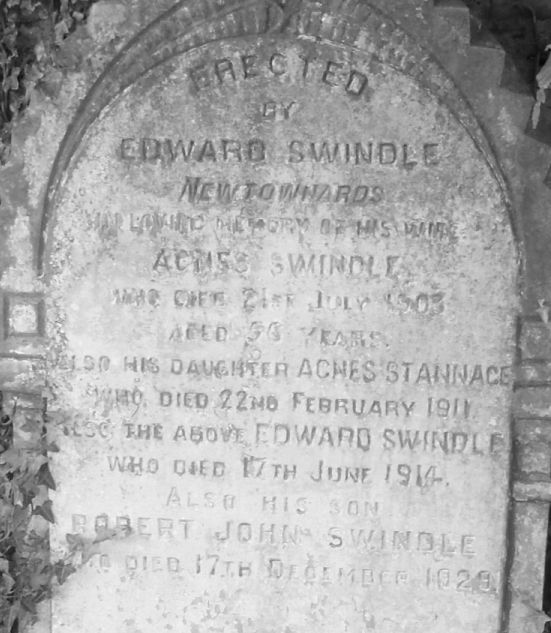 ERECTED
BY
EDWARD SWINDLE
NEWTOWNARDS
IN LOVING MEMORY OF HIS WIFE
AGNES SWINDLE
WHO DIED 21ST JULY 1903
AGED YEARS.
ALSO HIS DAUGHTER AGNES STANNAGE
WHO DIED 22ND FEBRUARY 1911.
ALSO THE ABOVE EDWARD SWINDLE
WHO DIED 17TH JUNE 1914.
ALSO HIS SON
ROBERT JOHN SWINDLE
WHO DIED 17TH DECEMBER 1929